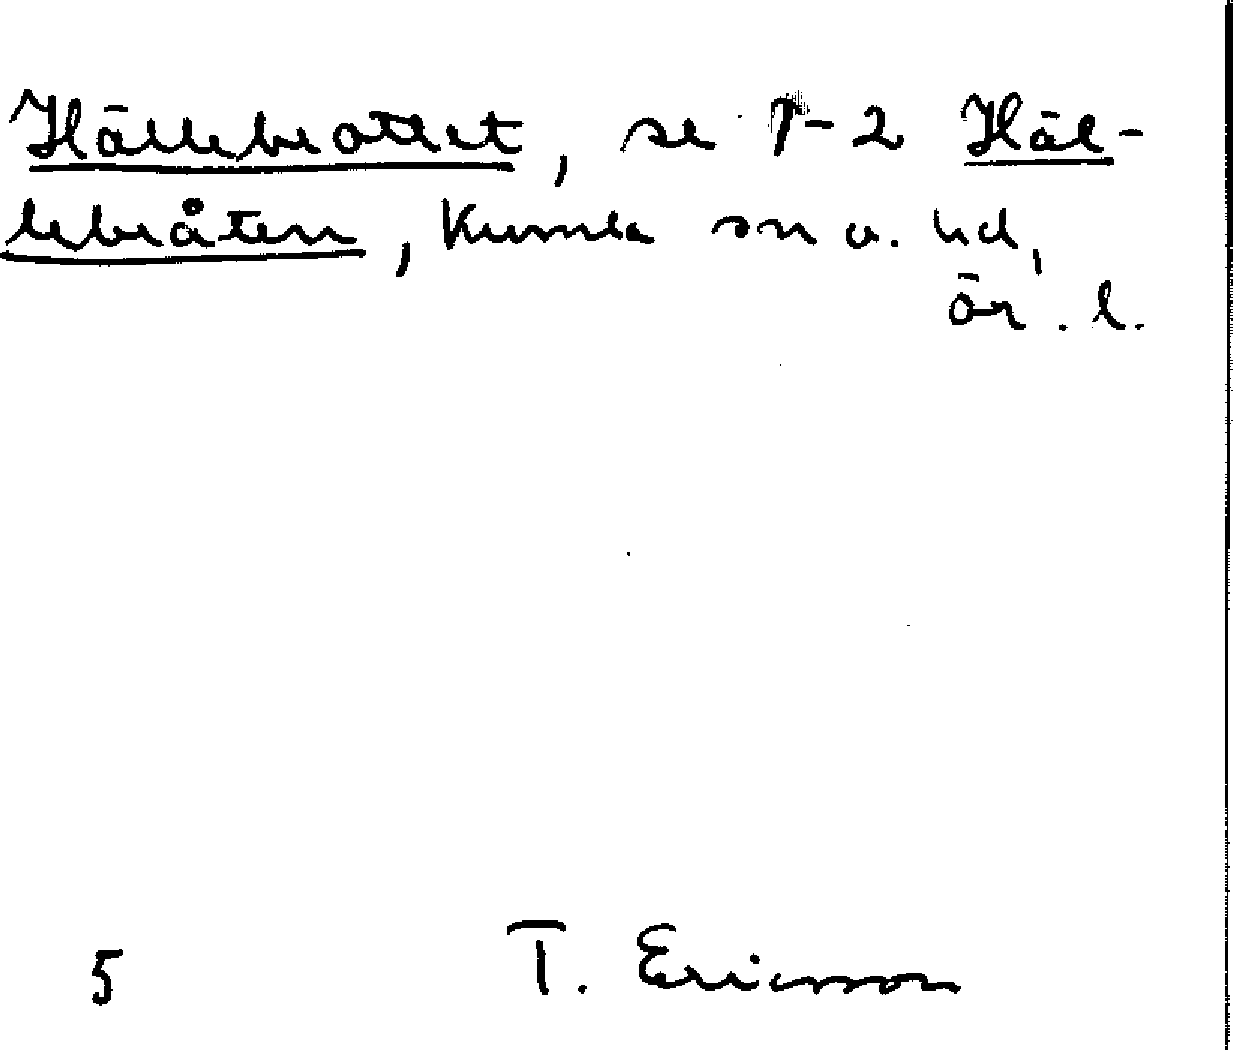 Hällebrottet, se 1-2 Häl-
lebråten, Kumla sn o. hd,
Ör. l.
5 T. Ericsson